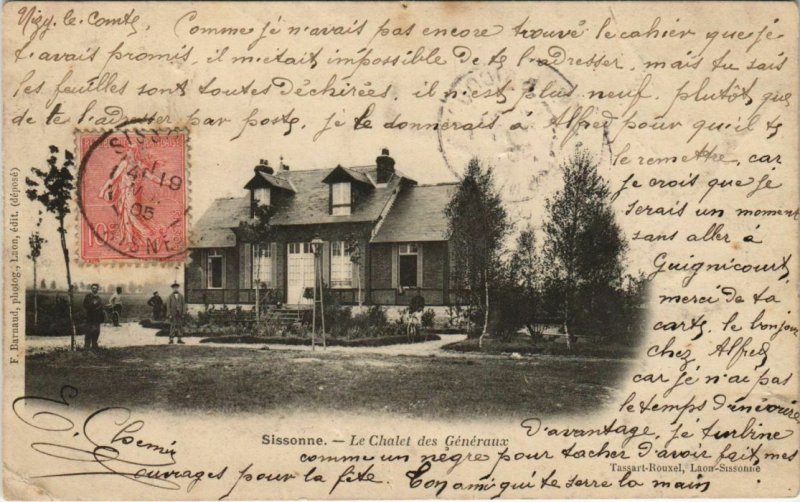 Vizy-le-Comte, Comme je n'avais pas encore trouvé le cahier que je
t'avais promis, il m'était impossible de te l'adresser, mais tu sais
les feuilles sont toutes déchirées, il n'est plus neuf. plutôt que
de te l'adresser par poste, je le donnerais à Alfred pour qu'il te
le remette, car
je crois que je
serais un moment
sans aller à
Guignicourt,
merci de ta
carte, le bonjour
chez Alfred
car je n'ai pas
le temps d'en écrire
d'avantage, je turbine
comme un nègre pour tacher d'avoir fait mes
ouvrages pour la fête. Ton ami qui te serre la main
SISSONNE
19
05
AISNE
10c
F. Barnaud, photog., Laon, édit. (déposé)
Sissonne. — Le Chalet des Généraux
Tassart-Rouxel, Laon-Sissonne